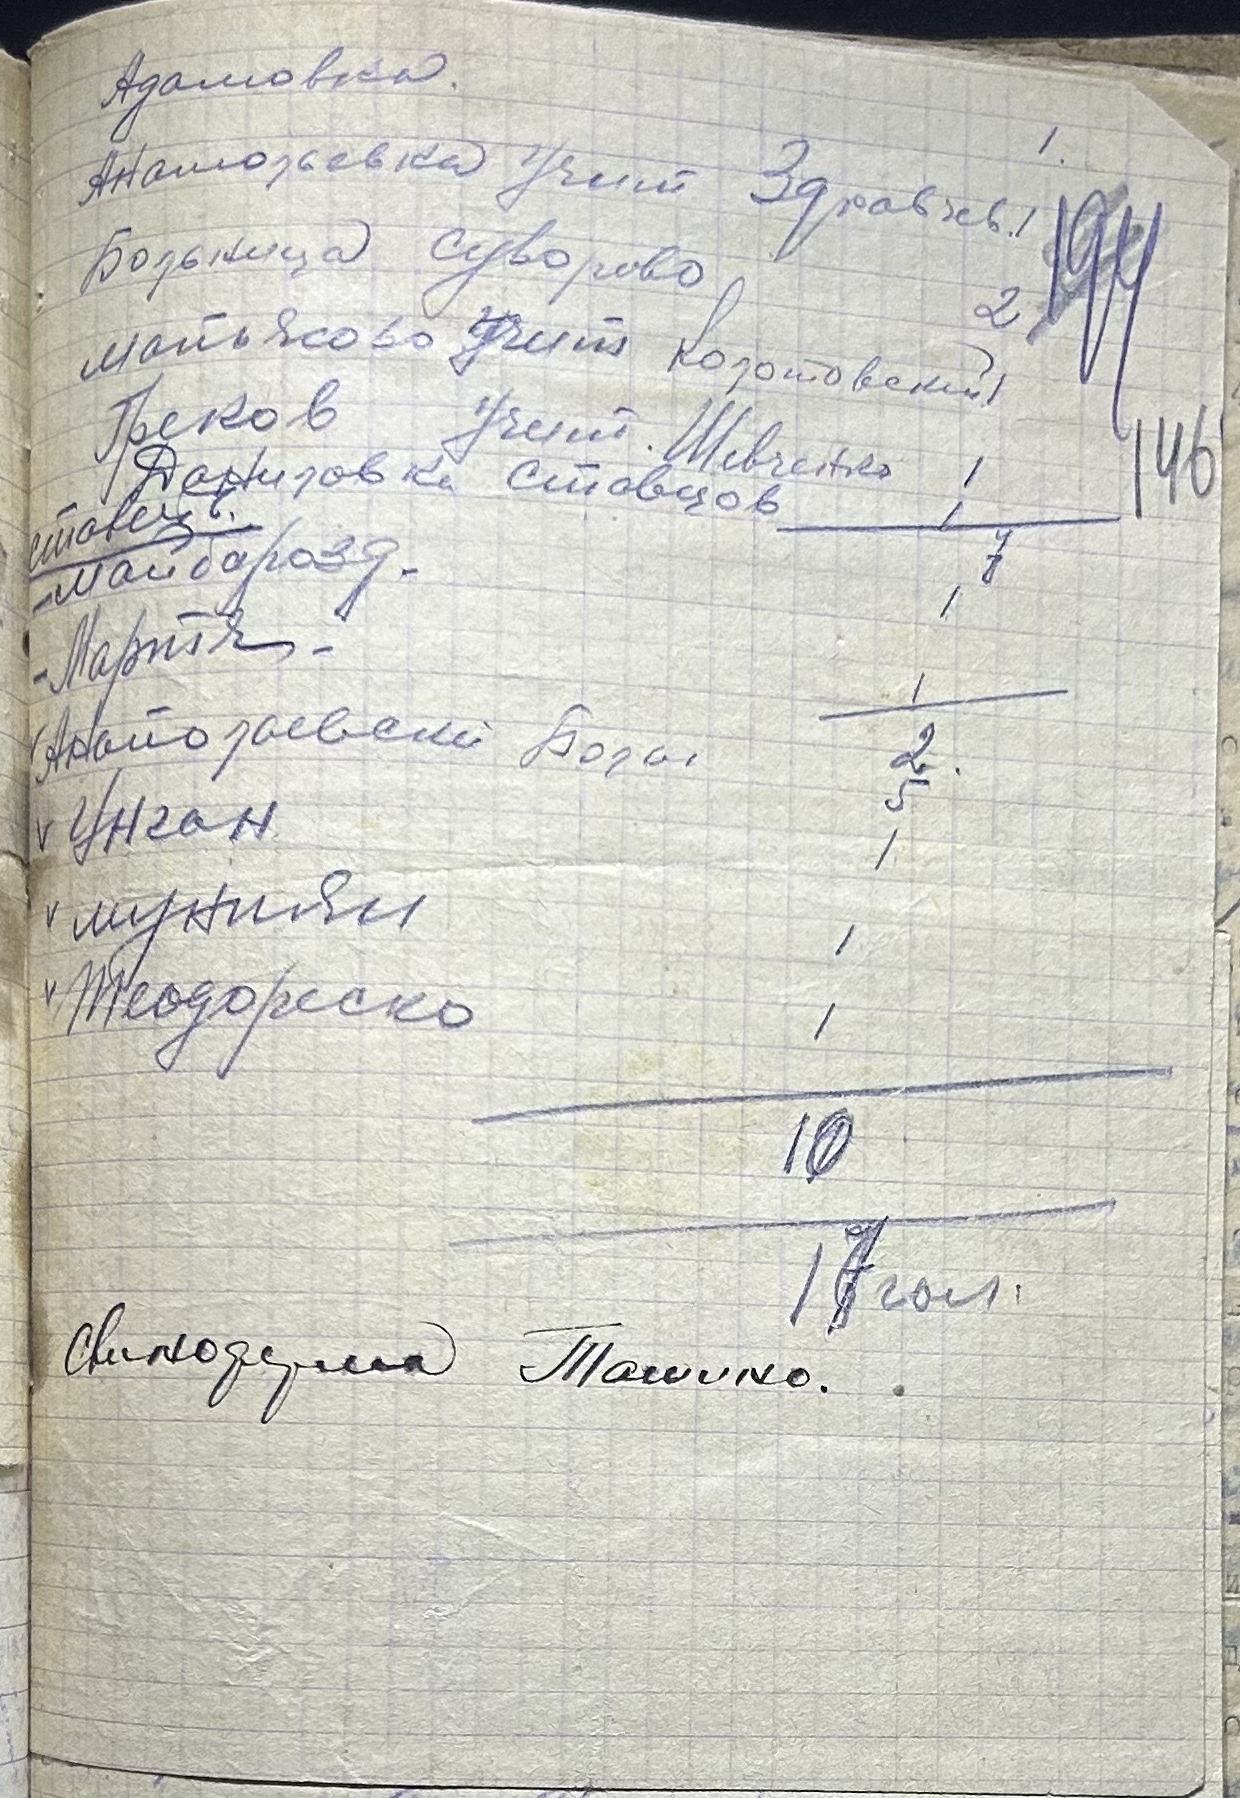 Адамовка. 1.
Анатольевка Учит Здравчев. 1
194
Больница Суворово 2
Матьясово Учит Колотовский 1
146
Греков Учит. Шевченко 1
Даниловка Ставцов 1
Ставцов.
7
- Майбарозд. 1
- Мартя - 1
Анатольевский Больн. 2.
5
v Унган 1
v Мунтян 1
v Теодореско 1
10
17 гол.
Свиноферма Ташино.